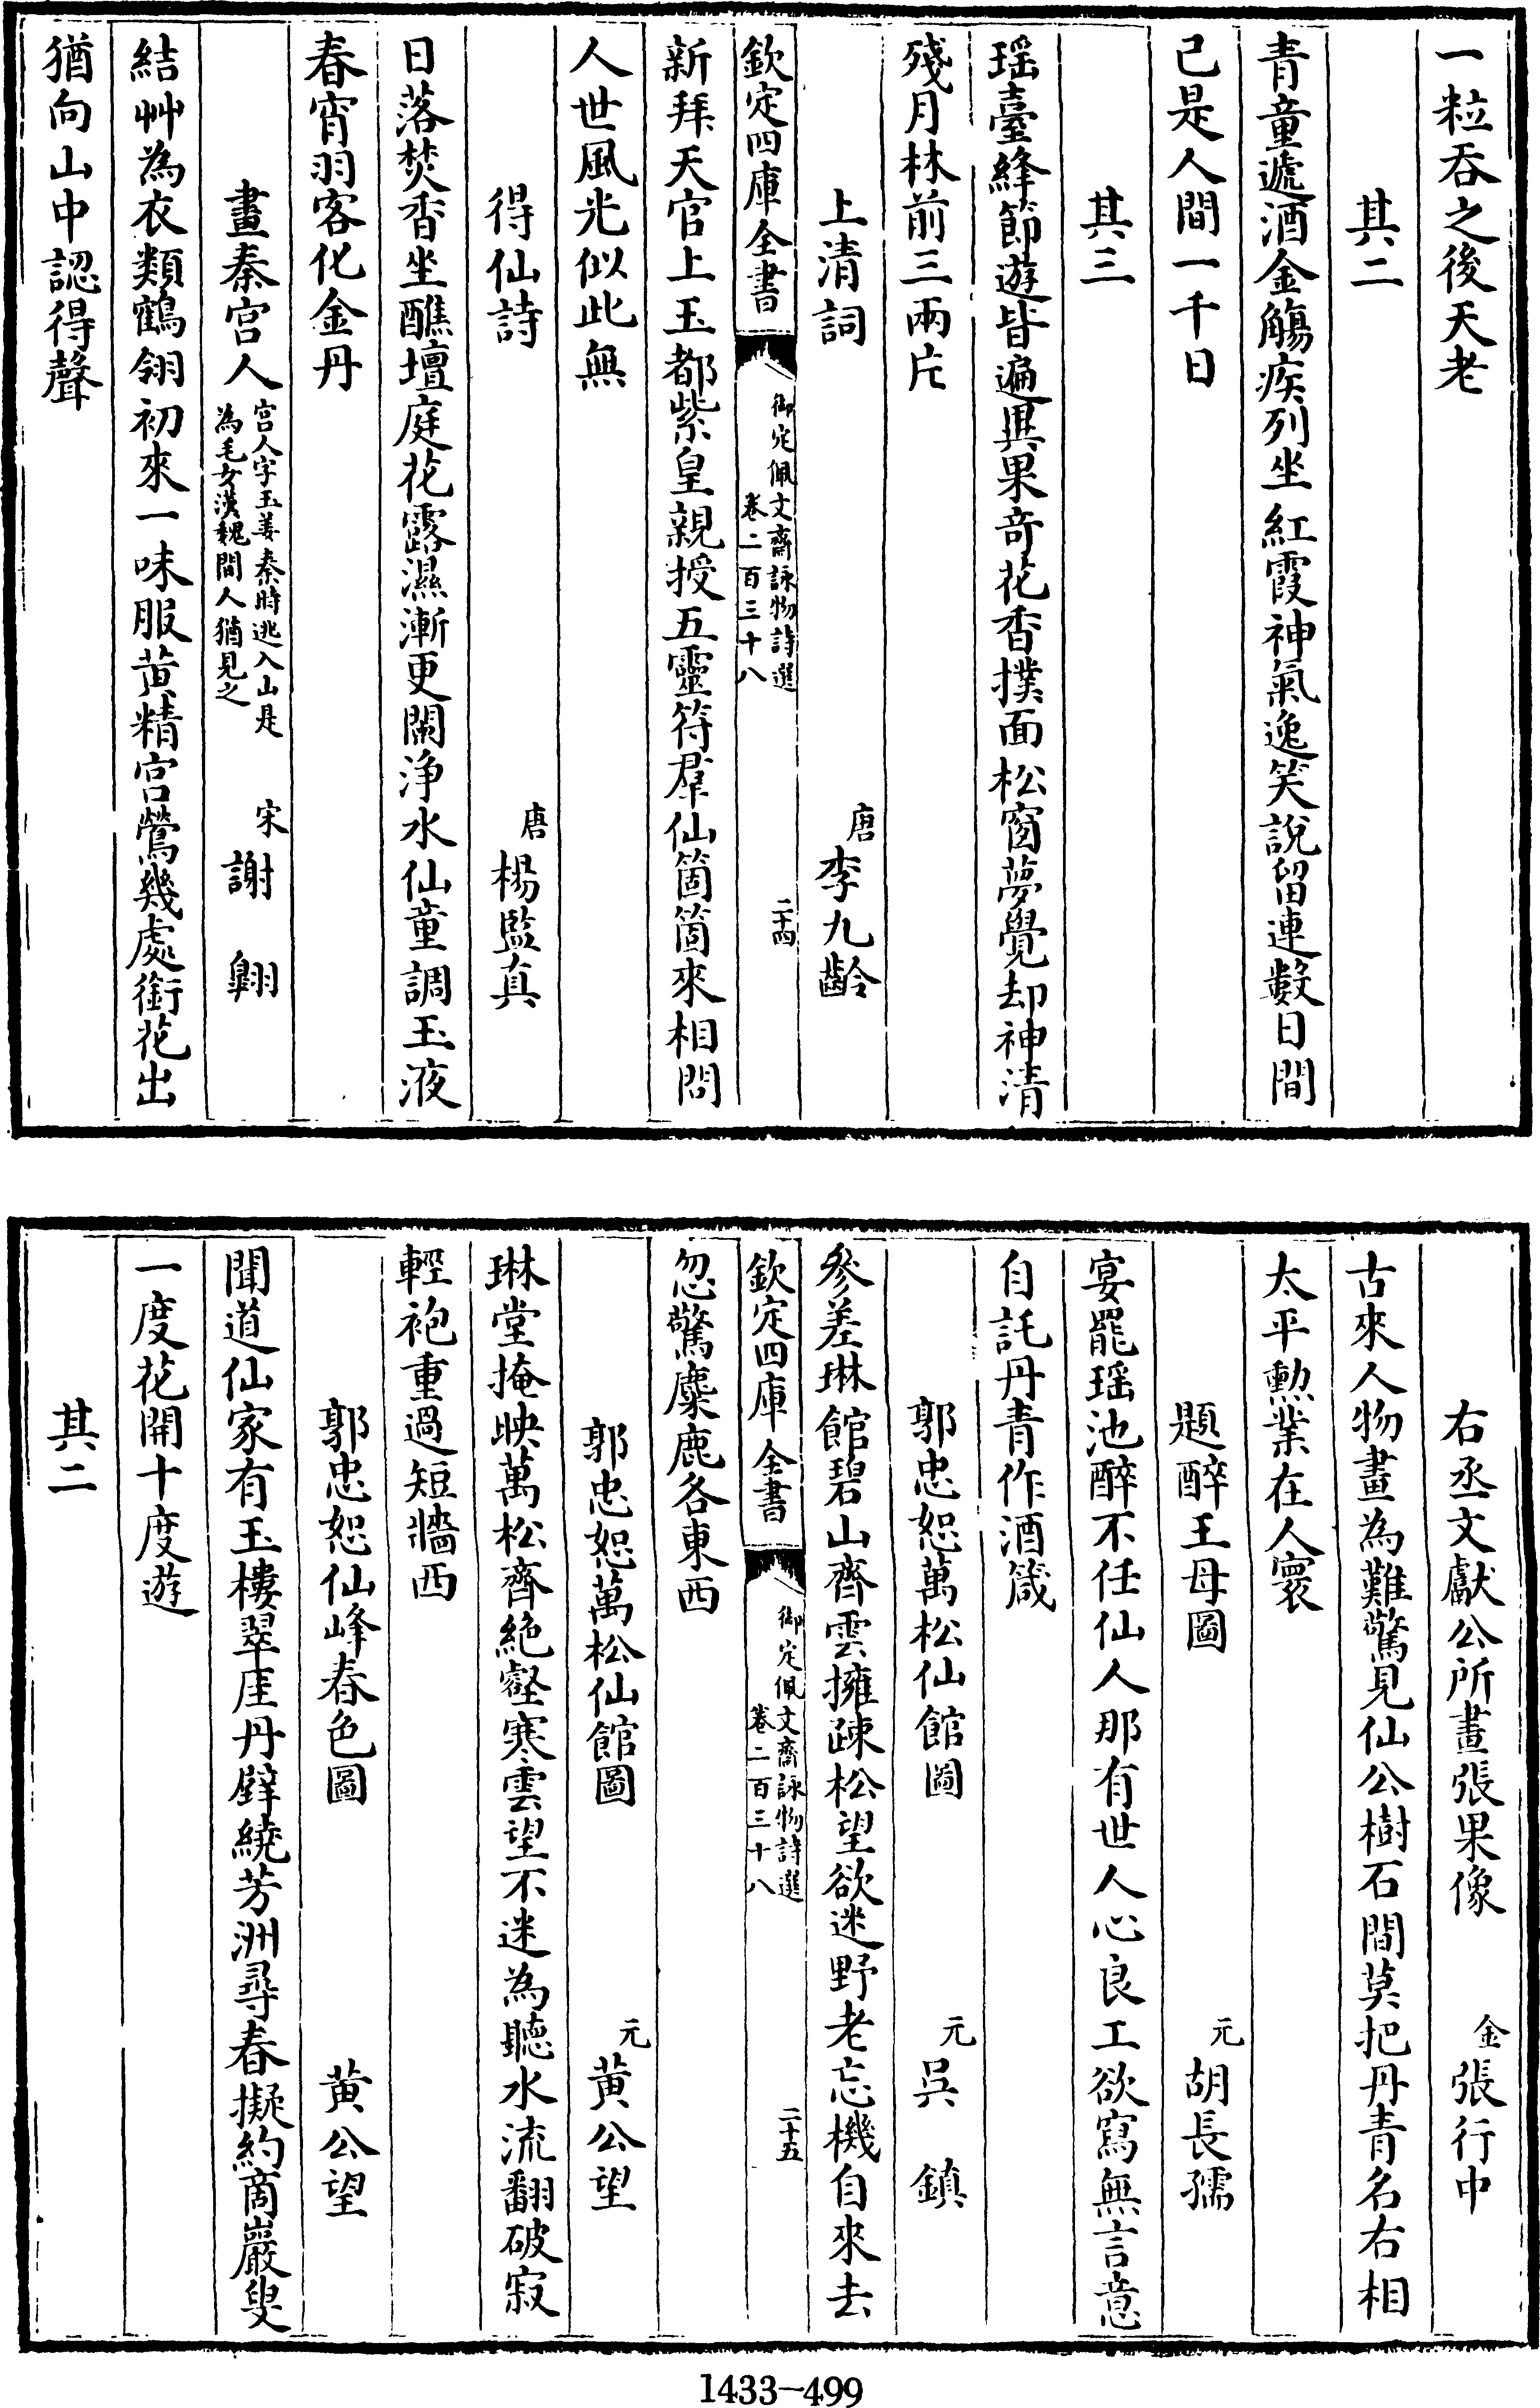 一粒吞之後天老
其二
青童遞酒金觴疾列坐紅霞神氣逸笑說留連數日間
已是人間一千日
其三
瑶臺絳節遊皆遍異果奇花香撲面松窗夢覺却神清
殘月林前三兩片
上清詞　唐李九齡
欽定四庫全書　御定佩文齋詠物詩選　卷二百三十八　二十四
新拜天官上玉都紫皇親授五靈符羣仙箇箇來相問
人世風光似此無
得仙詩　唐楊監真
日落焚香坐醮壇庭花露濕漸更闌浄水仙童調玉液
春宵羽客化金丹
畫秦宫人　宫人字玉姜秦時逃入山是為毛女漢魏間人猶見之　宋謝翱
結艸為衣類鶴翎初來一味服黄精宫鶯幾處銜花出
猶向山中認得聲
右丞文獻公所畫張果像　金張行中
古來人物畫為難驚見仙公樹石間莫把丹青名右相
太平勲業在人寰
題醉王母圖　元胡長孺
宴罷瑶池醉不任仙人那有世人心良工欲寫無言意
自託丹青作酒箴
郭忠恕萬松仙館圖　元吳鎮
參差琳館碧山齊雲擁疎松望欲迷野老忘機自來去
欽定四庫全書　御定佩文齋詠物詩選　卷二百三十八　二十五
忽驚麋鹿各東西
郭忠恕萬松仙館圖　元黄公望
琳堂掩映萬松齊絶壑寒雲望不迷為聽水流翻破寂
輕袍重過短牆西
郭忠恕仙峰春色圖　黄公望
聞道仙家有玉樓翠厓丹壁繞芳洲尋春擬約商巖叟
一度花開十度遊
其二
1433-499